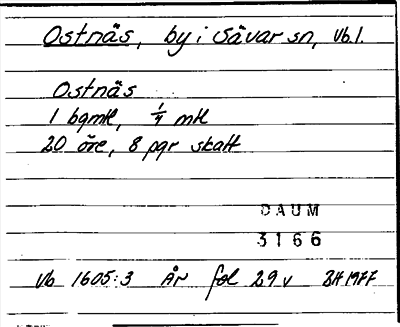 Ostnäs, by i Sävar sn, Vb.l.
Ostnäs
1 bgmtl, 1/4 mtl
20 öre, 8 pgr skatt
DAUM
3166
Vb 1605:3 ÅR fol 29 v BH 1977